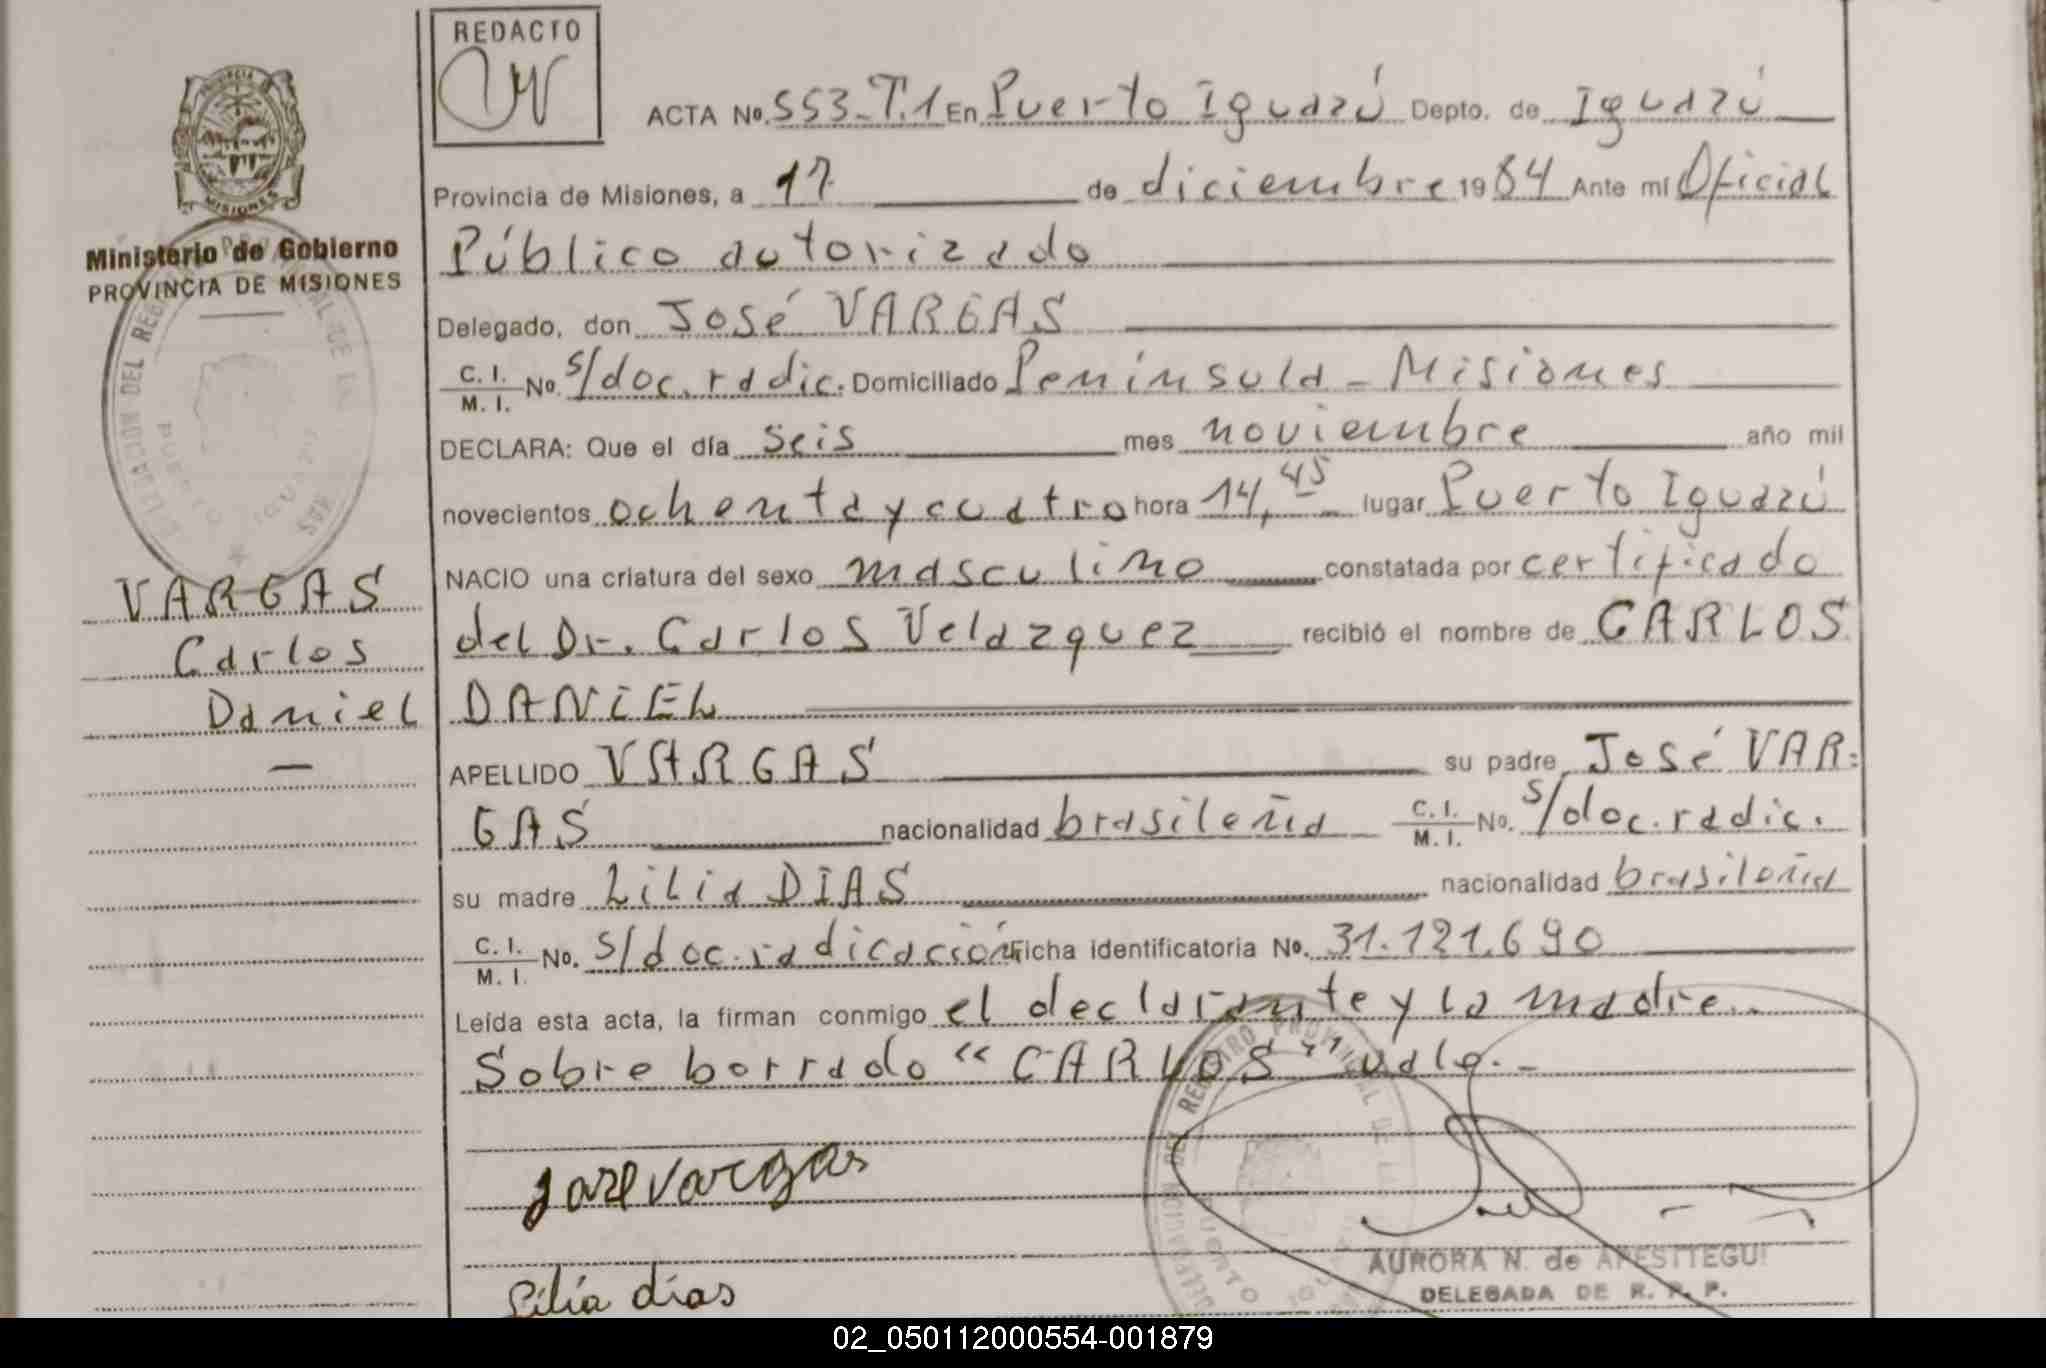 REDACTO
ACTA No. 553-T.1 En Puerto Iguazú Depto. de Iguazú
Provincia de Misiones, a 17 de diciembre 1984 Ante mí Oficial
Público autorizado
Ministerio de Gobierno
PROVINCIA DE MISIONES
Delegado, don José VARGAS
C. I. / M. I. No. s/doc. radic. Domiciliado Península - Misiones
DECLARA: Que el día seis mes noviembre año mil
novecientos ochenta y cuatro hora 14,45 lugar Puerto Iguazú
NACIO una criatura del sexo masculino constatada por certificado
del Dr. Carlos Velazquez recibió el nombre de CARLOS
DANIEL
VARGAS
Carlos
Daniel
APELLIDO VARGAS su padre José VAR=
GAS nacionalidad brasileña C. I. / M. I. No. s/doc. radic.
su madre Lilia DIAS nacionalidad brasileña
C. I. / M. I. No. s/doc. radicación Ficha identificatoria No. 31.121.690
Leída esta acta, la firman conmigo el declarante y la madre..
Sobre borrado "CARLOS" vale.-
Jose vargas
Lilia dias
AURORA N. de APESTTEGUI
DELEGADA DE R. P. P.
02_050112000554-001879